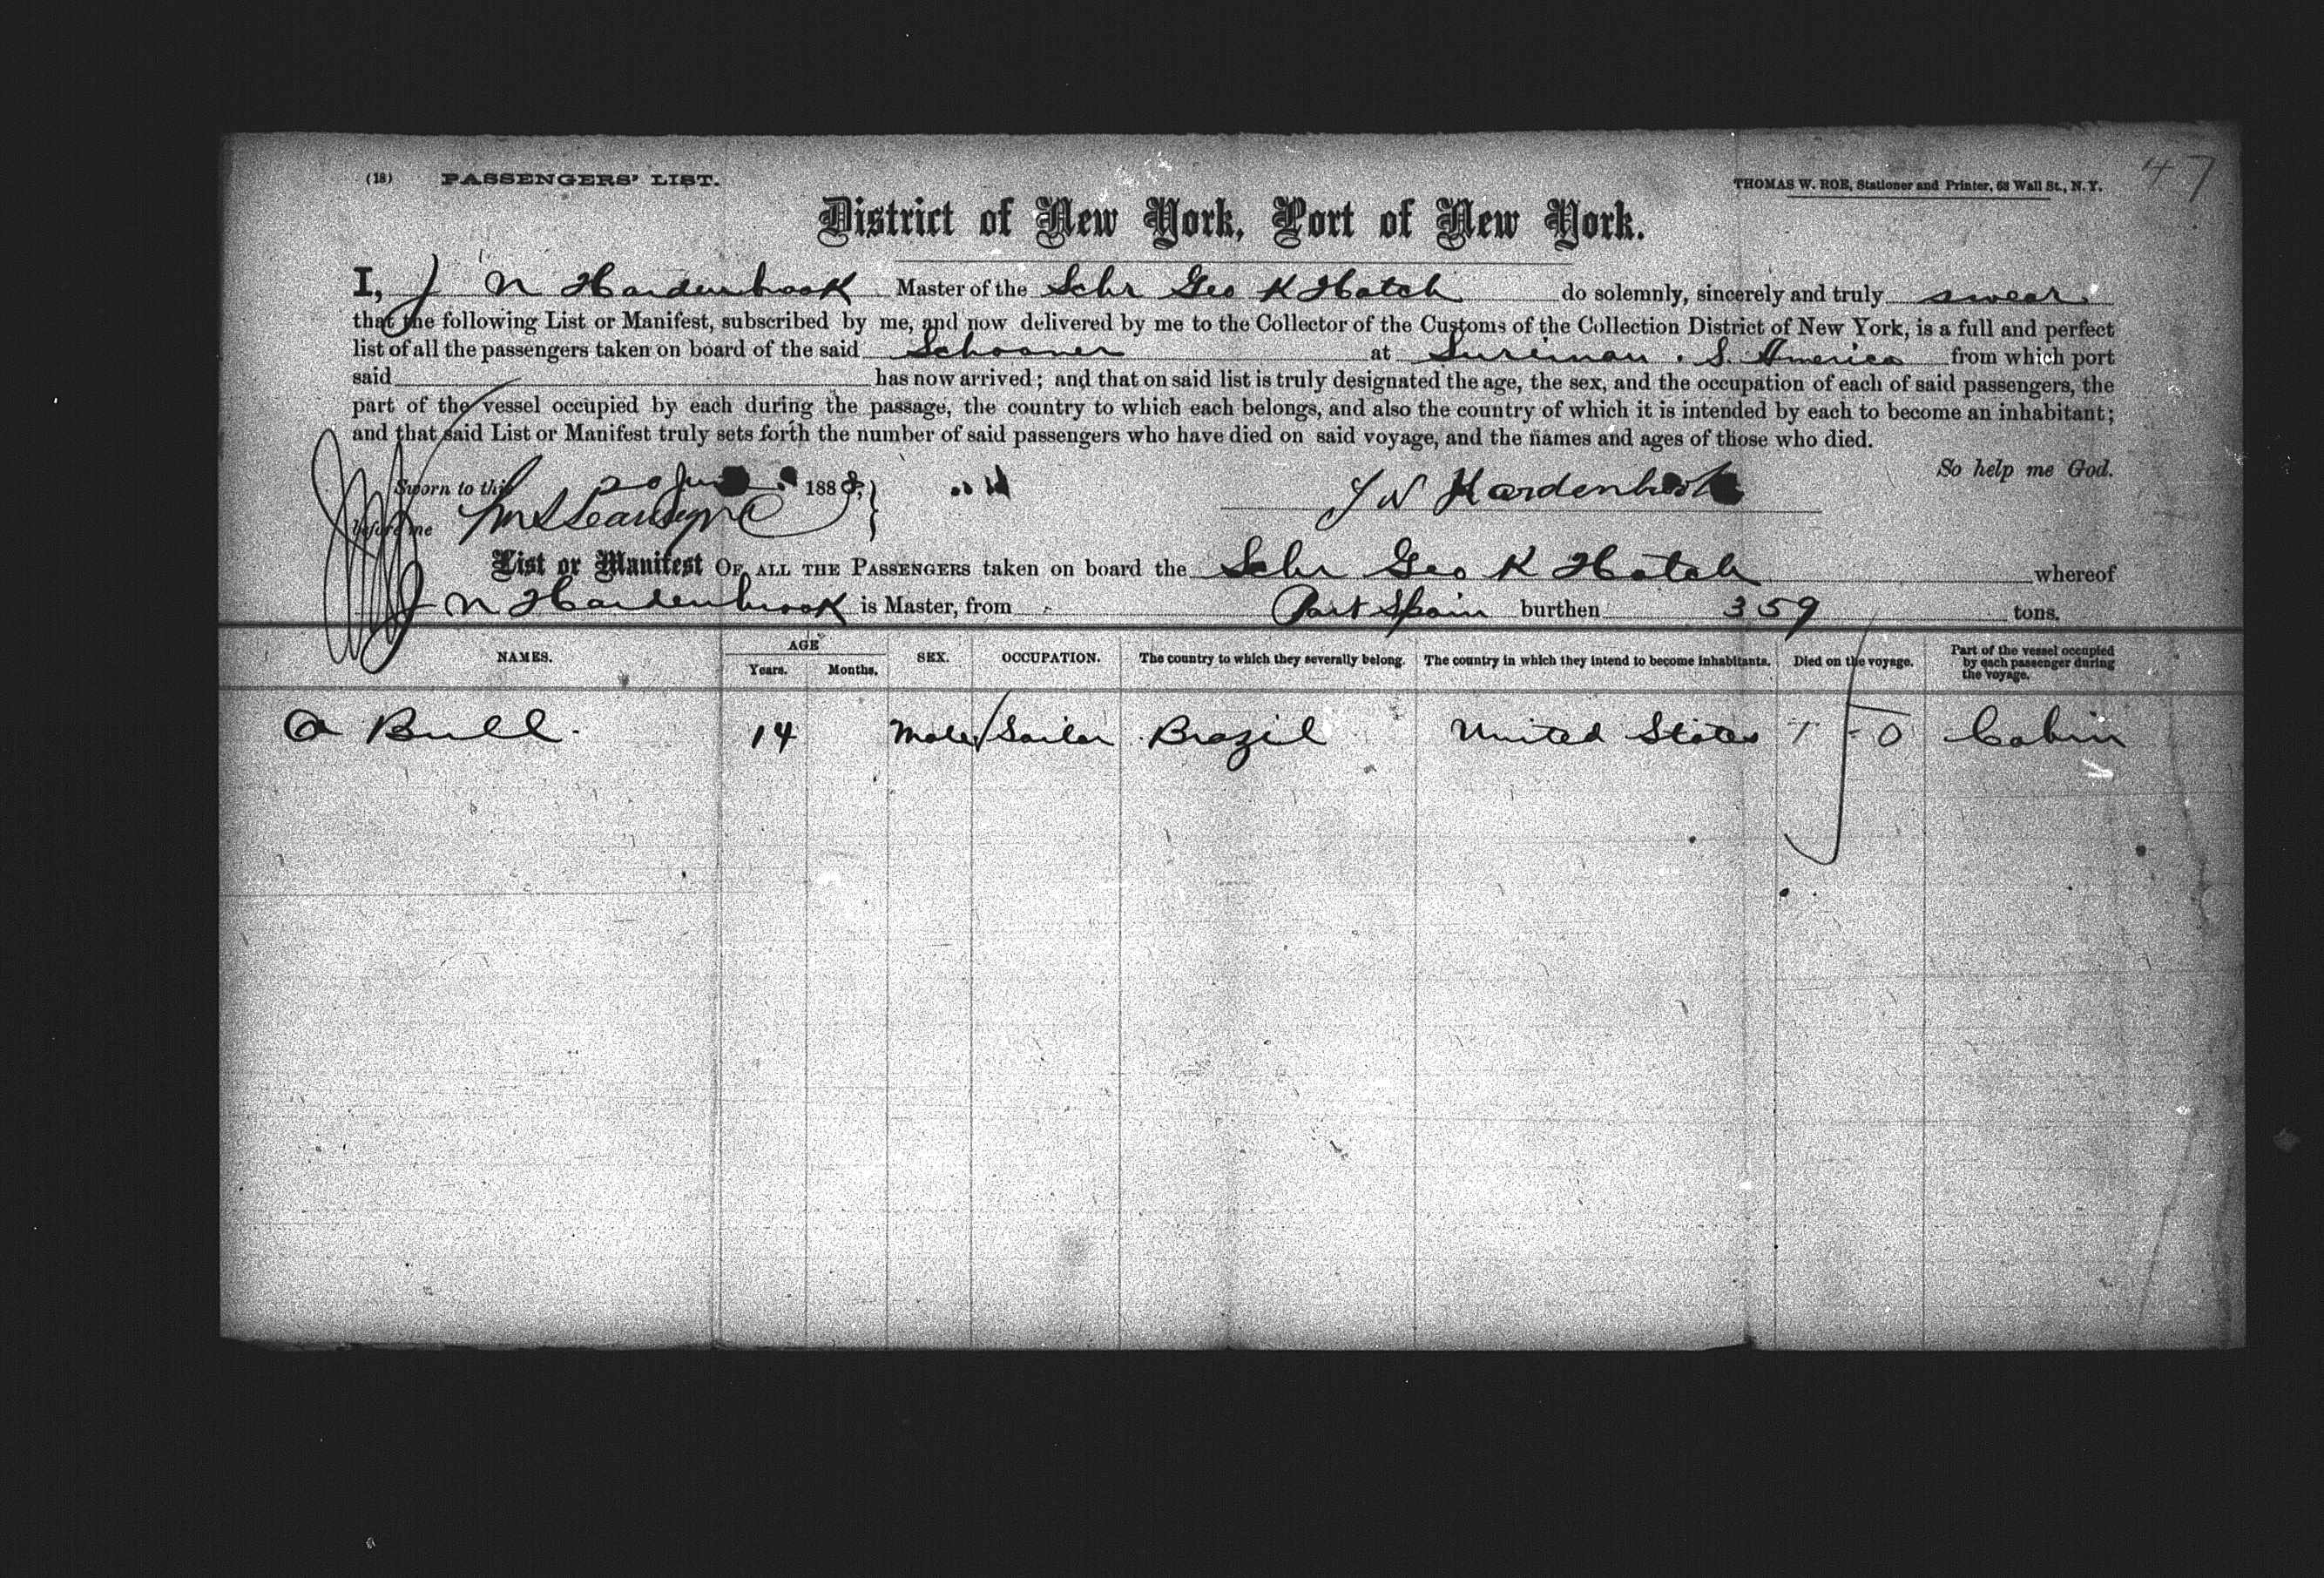 47
(18) PASSENGERS' LIST. THOMAS W. ROE, Stationer and Printer, 68 Wall St., N.Y.
District of New York, Port of New York.
I, J N Hardenbrook Master of the Schr Geo K Hatch do solemnly, sincerely and truly swear
that the following List or Manifest, subscribed by me, and now delivered by me to the Collector of the Customs of the Collection District of New York, is a full and perfect
list of all the passengers taken on board of the said Schooner at Surinan . S. America from which port
said has now arrived; and that on said list is truly designated the age, the sex, and the occupation of each of said passengers, the
part of the vessel occupied by each during the passage, the country to which each belongs, and also the country of which it is intended by each to become an inhabitant;
and that said List or Manifest truly sets forth the number of said passengers who have died on said voyage, and the names and ages of those who died.
So help me God.
Sworn to this 20 1888, J N Hardenbrook
before me
List or Manifest OF ALL THE PASSENGERS taken on board the Schr Geo K Hatch whereof
J N Hardenbrook is Master, from Port Spain burthen 359 tons.
NAMES. AGE Years. Months. SEX. OCCUPATION. The country to which they severally belong. The country in which they intend to become inhabitants. Died on the voyage. Part of the vessel occupied by each passenger during the voyage.
A Bull. 14 Male / Sailor Brazil United States 0 Cabin